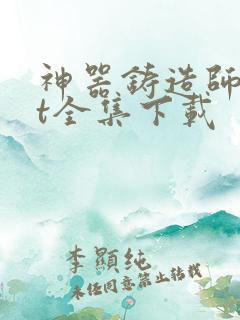 神器铸造師
t全集下載
李顯纯
未经同意禁止转载